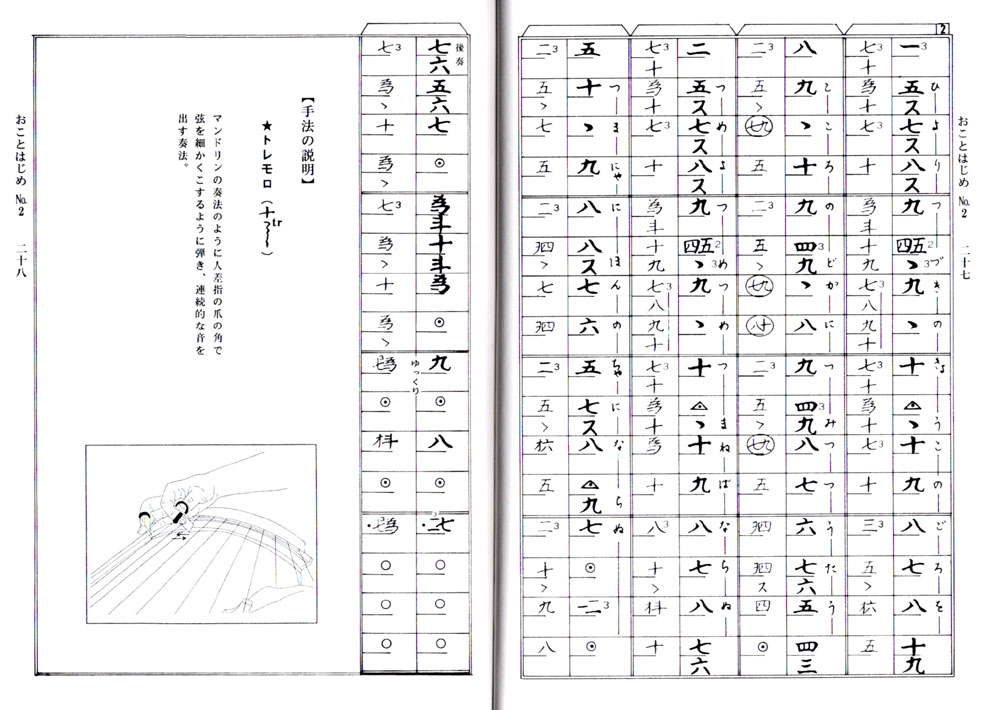 2
おことはじめ No.2 二十七
一3 五ス 七ス 八ス 九 四五2 ゝ3 九 ゝ 十 ゝ 十 九 八 七 八 十九
ひよりつづきのきょうこのごろを
七3十 為十 七3 十 為斗 十九 七3八 九十 七3十 為十 七3 十 三3 五> 五
八 九 ゝ 十 九 四3九 ゝ 八 九 四3九 八 七 六 七六 五 四三
こころのどかにつみつつうたう
二3 五> 五 二3 五> 二3 五> 五 四 ⊙
二 五ス 七ス 八ス 九 四五2 ゝ3 九 ゝ 十 ゝ 十 九 八 七 八 七六
つめよつめつめつまねばならぬ
七3十 為十 七3 十 為斗 十九 七3八 九十 七3十 為十 為 十 八3 十> 十
五 十 ゝ 九 八 八ス 七 六 五 七ス 八 九 七 ⊙ 一二3 ⊙
つまにゃにほんのちゃにならぬ
二3 五> 七 五 二3 七 二3 五> 五 二3 十> 九 八
後奏
七六 五六 七 ⊙ 為斗 十斗 為 ⊙ 九 ⊙ 八 ⊙ ○ ○ ○
ゆっくり
七3 為ゝ 十 為> 七3 為> 十 為> ⊙ ⊙ ○ ○ ○
【手法の説明】
★トレモロ（十tr）
マンドリンの奏法のように人差指の爪の角で
弦を細かくこするように弾き、連続的な音を
出す奏法。
おことはじめ No.2 二十八